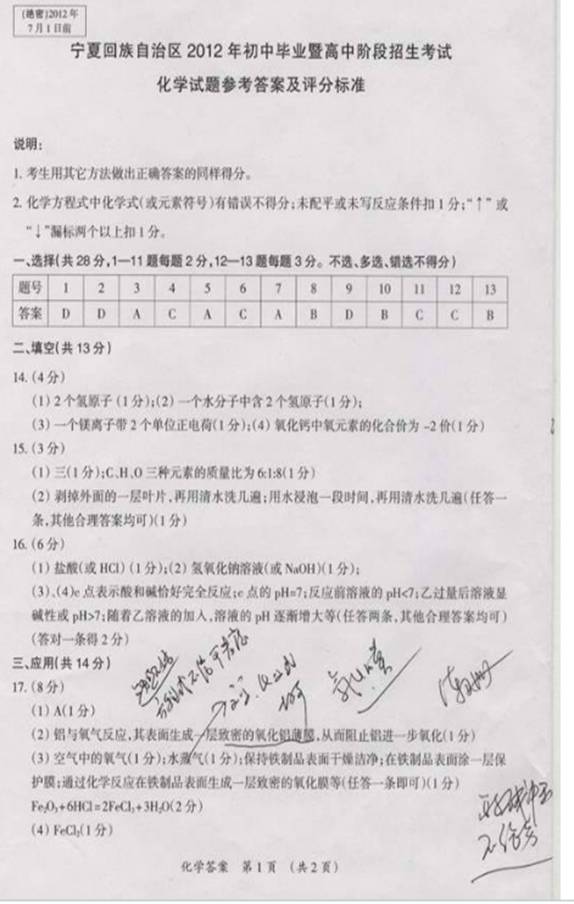 (绝密)2012年
7月1日前
宁夏回族自治区 2012 年初中毕业暨高中阶段招生考试
化学试题参考答案及评分标准
说明:
1. 考生用其它方法做出正确答案的同样得分。
2. 化学方程式中化学式(或元素符号)有错误不得分;未配平或未写反应条件扣1分;“↑”或
“↓”漏标两个以上扣1分。
一、选择(共28分,1—11题每题2分,12—13题每题3分。不选、多选、错选不得分)
题号 1 2 3 4 5 6 7 8 9 10 11 12 13
答案 D D A C A C A B D B C C B
二、填空(共13分)
14. (4分)
(1) 2个氢原子 (1分);(2) 一个水分子中含2个氢原子(1分);
(3) 一个镁离子带2个单位正电荷(1分);(4) 氧化钙中氧元素的化合价为 -2价(1分)
15. (3分)
(1) 三(1分);C、H、O三种元素的质量比为6:1:8(1分)
(2) 剥掉外面的一层叶片,再用清水洗几遍;用水浸泡一段时间,再用清水洗几遍(任答一
条,其他合理答案均可)(1分)
16. (6分)
(1) 盐酸(或HCl) (1分);(2) 氢氧化钠溶液(或NaOH)(1分);
(3)、(4)c点表示酸和碱恰好完全反应;c点的pH=7;反应前溶液的pH<7;乙过量后溶液显
碱性或pH>7;随着乙溶液的加入,溶液的pH逐渐增大等(任答两条,其他合理答案均可)
(答对一条得2分)
三、应用(共14分)
17. (8分)
(1) A(1分)
(2) 铝与氧气反应,其表面生成一层致密的氧化铝薄膜,从而阻止铝进一步氧化(1分)
(3) 空气中的氧气(1分);水蒸气(1分);保持铁制品表面干燥洁净;在铁制品表面涂一层保
护膜;通过化学反应在铁制品表面生成一层致密的氧化膜等(任答一条即可)(1分)
Fe₂O₃+6HCl=2FeCl₃+3H₂O(2分)
(4) FeCl₂(1分)
化学答案 第1页 (共2页)